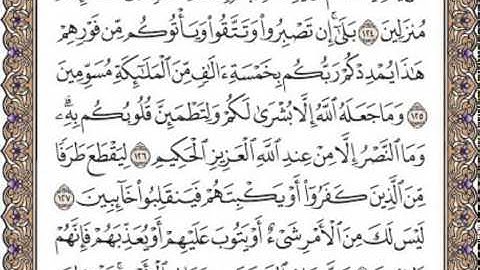 مُنزَلِينَ ١٢٤ بَلَىٰٓۚ إِن تَصْبِرُوا۟ وَتَتَّقُوا۟ وَيَأْتُوكُم مِّن فَوْرِهِمْ
هَٰذَا يُمْدِدْكُمْ رَبُّكُم بِخَمْسَةِ ءَالَٰفٍ مِّنَ ٱلْمَلَٰٓئِكَةِ مُسَوِّمِينَ
١٢٥ وَمَا جَعَلَهُ ٱللَّهُ إِلَّا بُشْرَىٰ لَكُمْ وَلِتَطْمَئِنَّ قُلُوبُكُم بِهِۦۗ
وَمَا ٱلنَّصْرُ إِلَّا مِنْ عِندِ ٱللَّهِ ٱلْعَزِيزِ ٱلْحَكِيمِ ١٢٦ لِيَقْطَعَ طَرَفًا
مِّنَ ٱلَّذِينَ كَفَرُوٓا۟ أَوْ يَكْبِتَهُمْ فَيَنقَلِبُوا۟ خَآئِبِينَ ١٢٧
لَيْسَ لَكَ مِنَ ٱلْأَمْرِ شَىْءٌ أَوْ يَتُوبَ عَلَيْهِمْ أَوْ يُعَذِّبَهُمْ فَإِنَّهُمْ